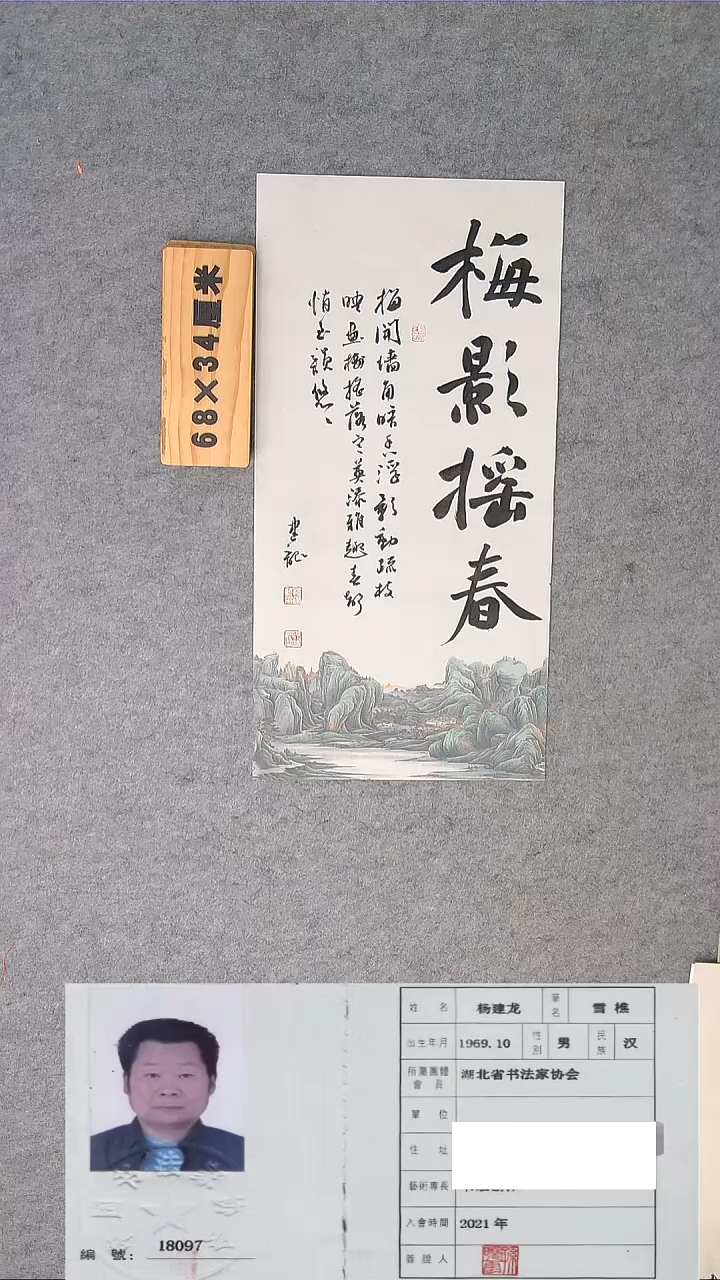 梅影摇春
梅開墻角暗香浮影動疏枝
映画梅摇落之英添雅趣春韵
悄至韻悠悠
68×34厘米
姓名 杨建龙 筆名 雪樵
出生年月 1969.10 性別 男 民族 汉
所屬團體會員 湖北省书法家协会
單位
住址
藝術專長
入會時間 2021年
簽證人
編號: 18097